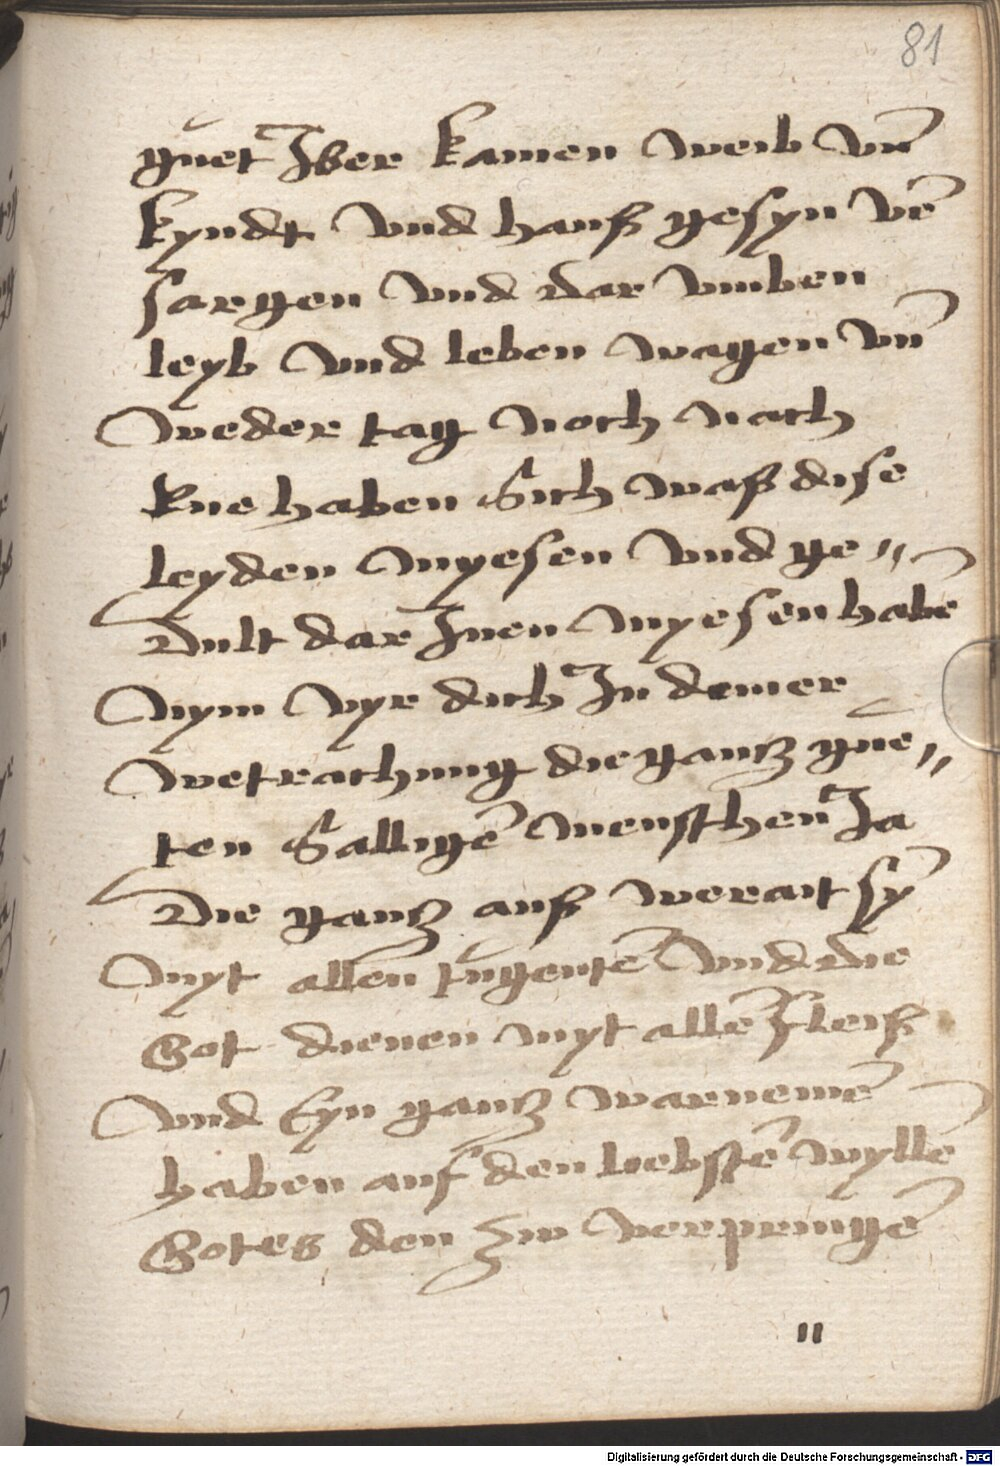 81
guet Iber kamen weib vn̄
kyndt vnd hauß gesyn vē
sargen vnd dar vmben
leyb vnd leben wagen vn̄
weder tag noch nach
Rue haben Sich waß dise
leyden myesen vnd ge〃
Dult dar Inen myesen habē
Nym vyr dich In deiner
wetrachung die gancz gue〃
ten Salligē menschen Ja
Die gancz auß werait sȳ
myt allen tugentē vnd die
Got dienen myt allē fleiß
vnd Eyn gancz warnemē
haben auf den liebstē wyllē
Gotes den zw verpringē
〃
Digitalisierung gefördert durch die Deutsche Forschungsgemeinschaft - DFG